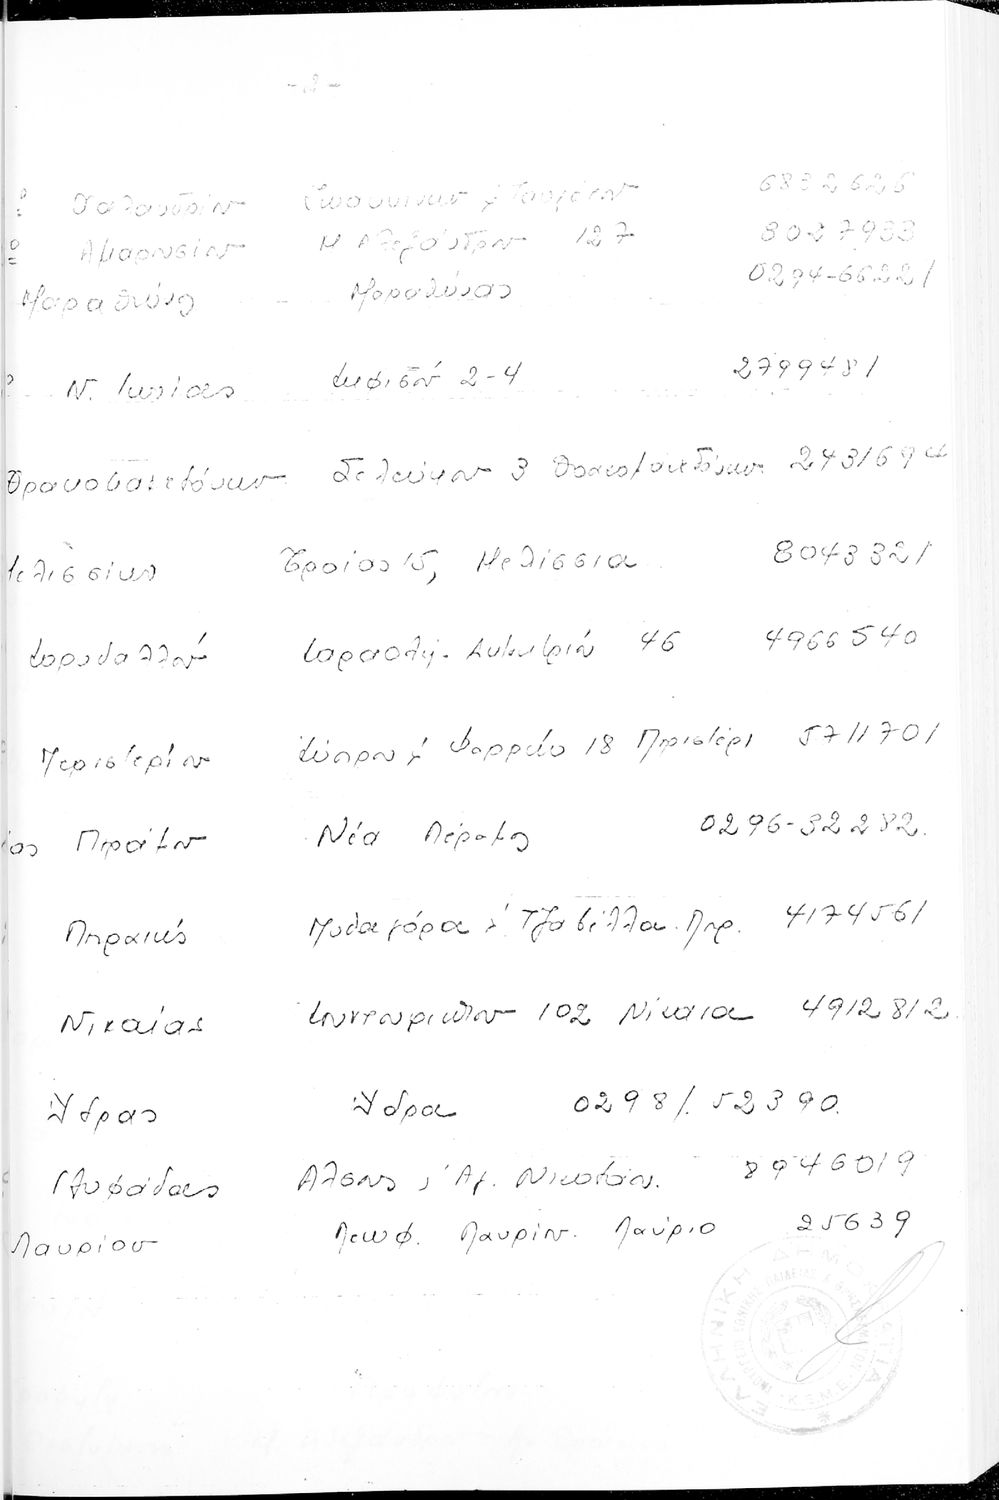 - 2 -
Χαλανδρίου 6832625
Αμαρουσίου 127 8027933
Μαραθώνα Μαραθώνας 0294-66221
Ν. Ιωνίας Κηφισού 2-4 2799481
Θρακομακεδόνων 3 Θρακομακεδόνων 2431694
Μελισσίων 15, Μελίσσια 8043321
Κορυδαλλού Καραολή - Δημητρίου 46 4966540
Περιστερίου Κύπρου & 18 Περιστέρι 5711701
Περάμου Νέα Πέραμος 0296-32282
Πειραιώς Πυθαγόρα & Τζαβέλλα Πειρ. 4174561
Νικαίας Κουντουριώτου 102 Νίκαια 4912812
Ύδρας Ύδρα 0298/52390
Γλυφάδας Άλσους & Αγ. Νικολάου 8946019
Λαυρίου Λεωφ. Λαυρίου Λαύριο 25639
ΕΛΛΗΝΙΚΗ ΔΗΜΟΚΡΑΤΙΑ
Κ.Ε.Μ.Ε.